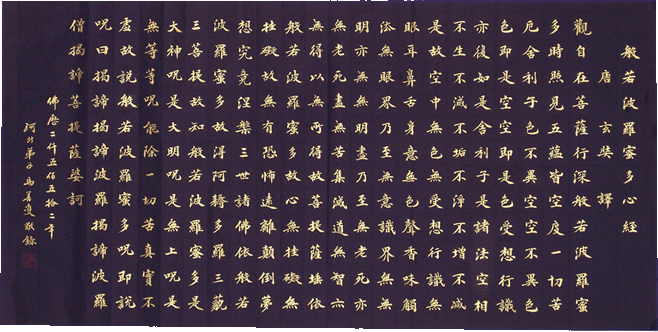 般若波羅蜜多心經
唐 玄奘 譯
觀自在菩薩行深般若波羅蜜
多時照見五蘊皆空度一切苦
厄舍利子色不異空空不異色
色即是空空即是色受想行識
亦復如是舍利子是諸法空相
不生不滅不垢不淨不增不減
是故空中無色無受想行識無
眼耳鼻舌身意無色聲香味觸
法無眼界乃至無意識界無無
明亦無無明盡乃至無老死亦
無老死盡無苦集滅道無智亦
無得以無所得故菩提薩埵依
般若波羅蜜多故心無挂礙無
挂礙故無有恐怖遠離顛倒夢
想究竟涅槃三世諸佛依般若
波羅蜜多故得阿耨多羅三藐
三菩提故知般若波羅蜜多是
大神呪是大明呪是無上呪是
無等等呪能除一切苦真實不
虛故說般若波羅蜜多呪即說
呪曰揭諦揭諦波羅揭諦波羅
僧揭諦菩提薩婆訶
佛曆二仟五佰五拾二年
弟子馬善敬錄